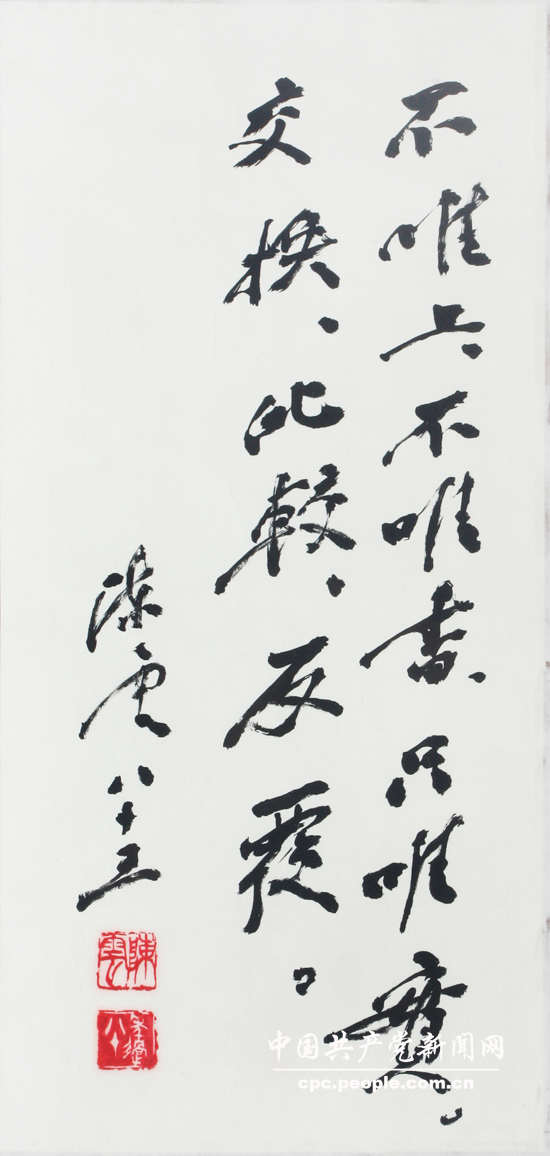 不唯上不唯书、只唯實。
交换、比較、反覆。
陈云八十三
陳雲
中国共产党新闻网
cpc.people.com.cn